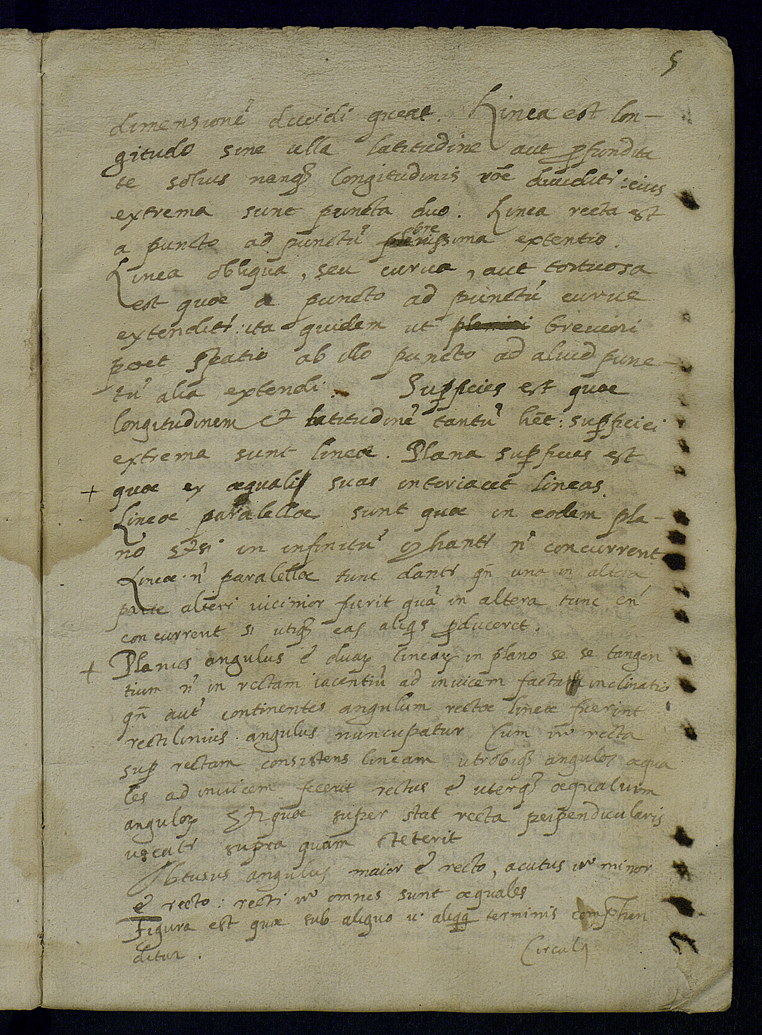 5
dimensione᷉ diuidi queat. Linea est lon-
gitudo sine ulla latitudine aut ꝓfundita
te solius nanqꝫ longitudinis diuidit᷉: eius
extrema sunt puncta duo. Linea recta est
a puncto ad punctu᷉ breuissima extentio.
Linea obliqua, seu curua, aut tortuosa
est quae a puncto ad punctu᷉ curue
extendit᷉: ita quidem ut breuiori
spatio ab illo puncto ad aliud punc-
tu᷉ alia extendi. Suꝑficies est quae
longitudinem & latitudine᷉ tantu᷉ het᷉: suꝑficiei
extrema sunt lineae. Plana suꝑficies est
+ quae ex aequali suas interiacet lineas.
Lineae paralellae sunt quae in eodem pla-
no in infinitu᷉ n᷉ concurrent
Lineae n᷉ paralellae tunc dant᷉ qn᷉ una in aliqua
parte alteri uicinior fuerit qua᷉ in altera tunc en᷉
concurrent si utiqꝫ eas aliqs ꝓduceret.
+ Planus angulus e᷉ duaꝝ lineaꝝ in plano se se tangen
tium n᷉ in rectam iacentiu᷉ ad inuicem facta inclinatio
qn᷉ aut᷉ continentes angulum rectae lineae fuerint
rectilinius angulus nuncupatur Cum recta
suꝑ rectam consistens lineam utrobiqꝫ angulos aequa
les ad inuicem fecerit rectus e᷉ uterqꝫ aequalium
anguloꝝ Et quae super stat recta perpendicularis
uocat᷉ supra quam steterit
Obtusus angulus maior e᷉ recto, acutus minor
e᷉ recto: recti omnes sunt aequales
Figura est quae sub aliquo terminis comp᷉hen
ditur.
Circulꝰ